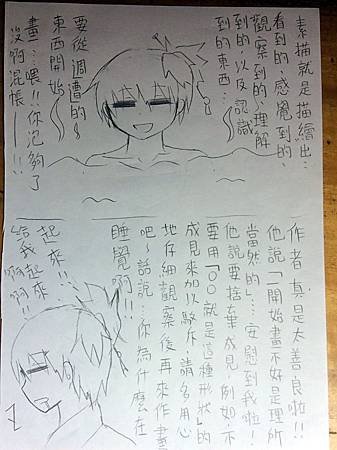 素描就是描繪出：
看到的、感覺到的、
觀察到的、理解
到的以及認識
到的東西…
要從週遭的
東西開始
畫…喂!!你泡夠了
沒啊混帳——!!
作者真是太善良啦!!
他說「一開始畫不好是理所
當然的」…安慰到我啦!
他說要捨棄成見，例如：不
要用「○○就是這種形狀」的
成見來加以駁斥，請多用心
地仔細觀察後再來作畫
吧~話說…你為什麼在
睡覺啊!!
起來!!
給我起來
啊啊啊!!
Z